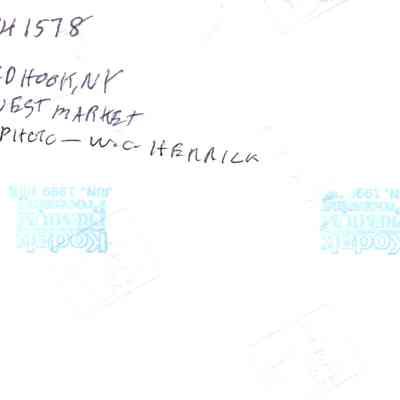 H 1578
D HOOK, NY
WEST MARKET
PHOTO — W.C. HERRICK
JUN. 1999
Kodak
JUN. 199
Kodak